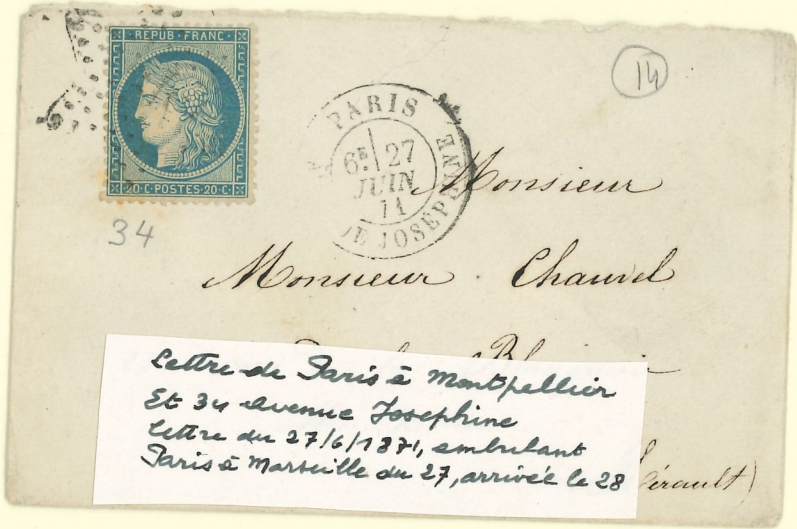 REPUB · FRANC ·
14
PARIS
6E 27
JUIN
71
JOSÉPHINE
20·C·POSTES·20·C·
34
Monsieur
Monsieur Chauvel
Lettre de Paris à Montpellier
Et 34 avenue Josephine
lettre du 27/6/1871, ambulant
Paris à Marseille du 27, arrivée le 28
Hérault)